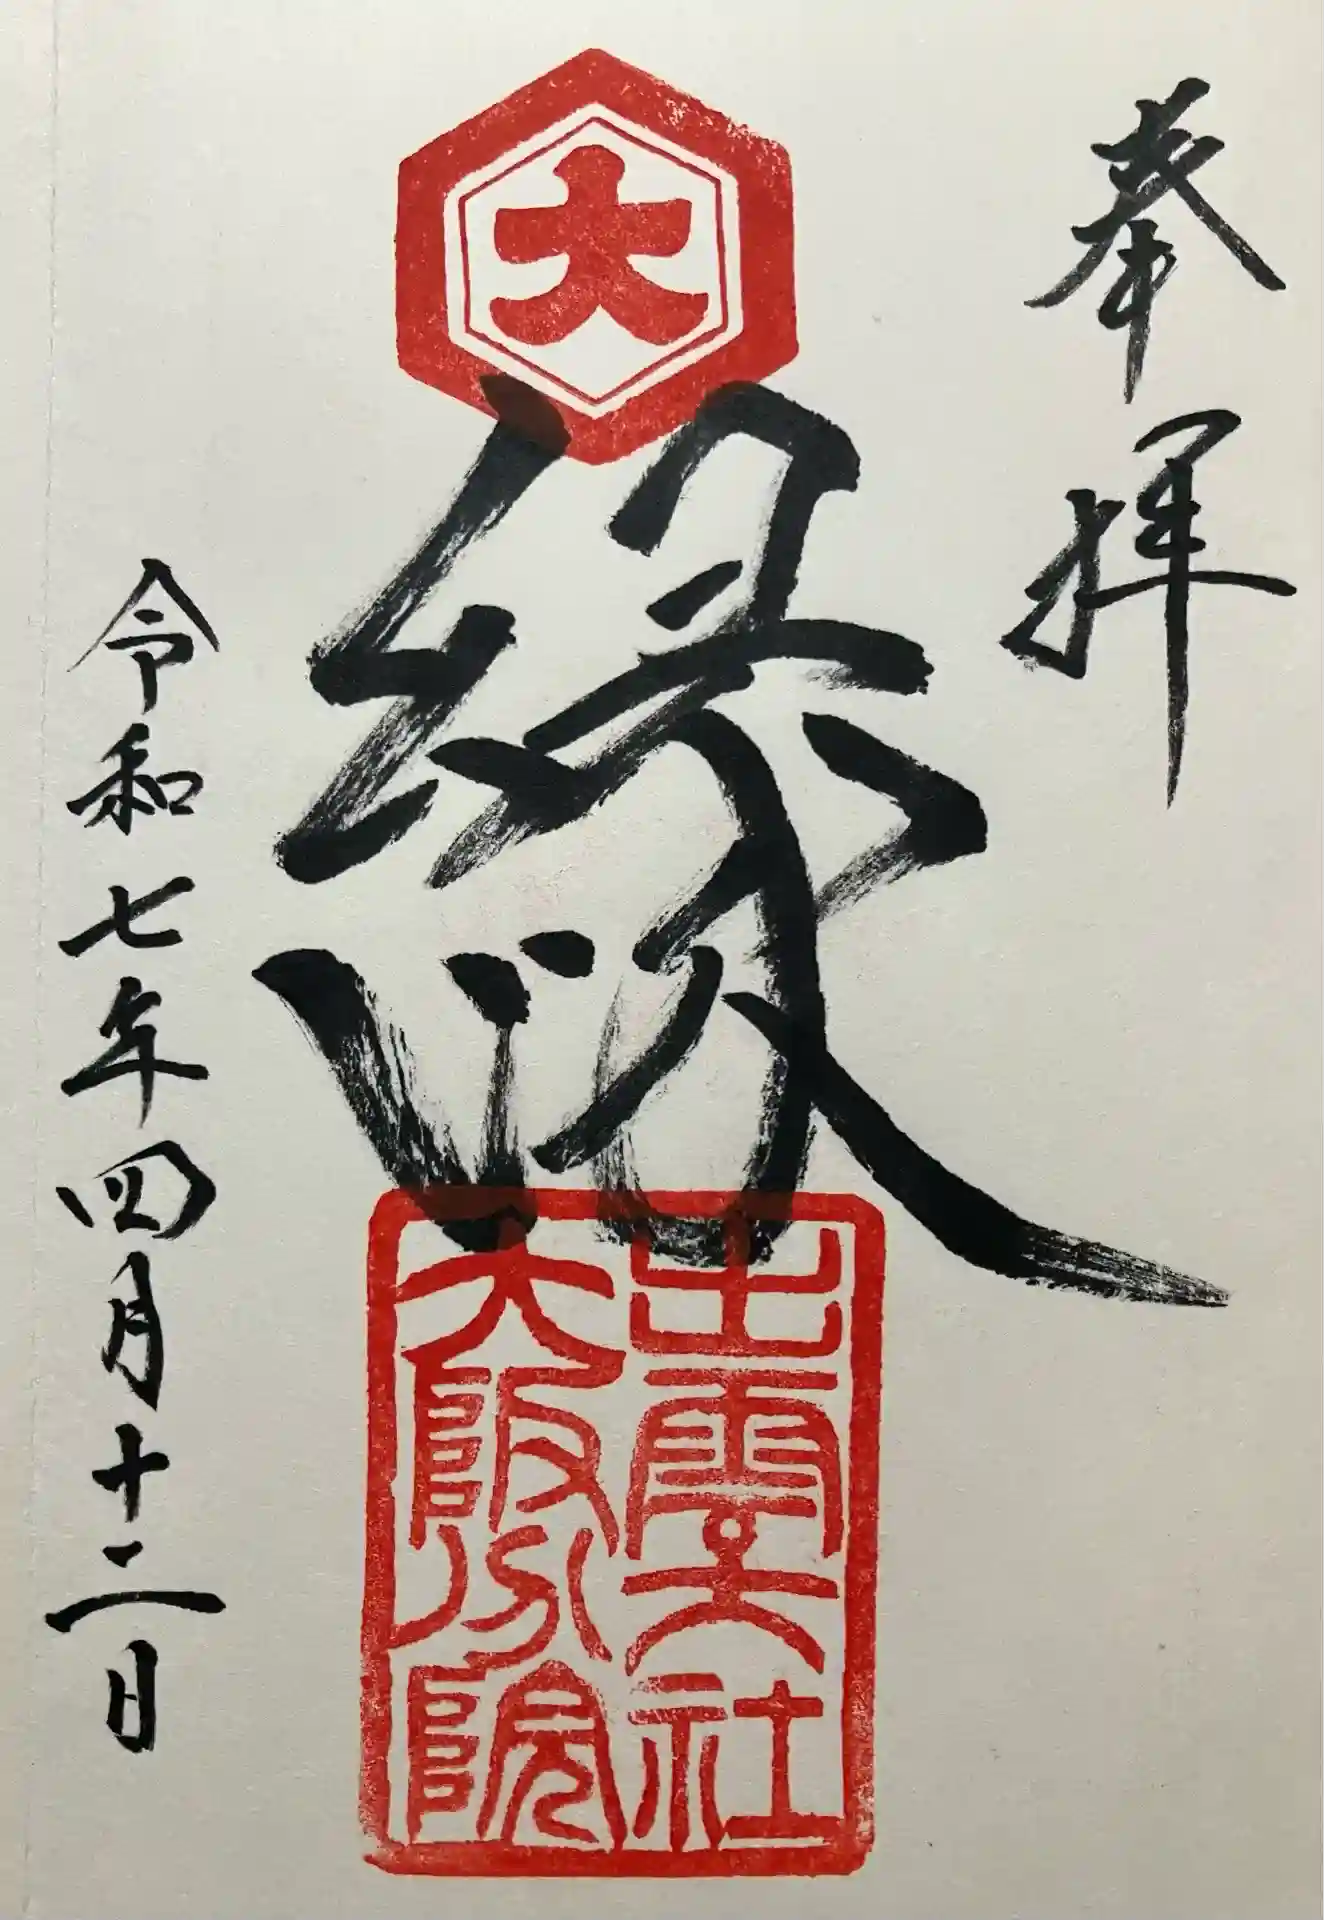 奉拝
大
縁
出雲大社
大阪分院
令和七年四月十二日